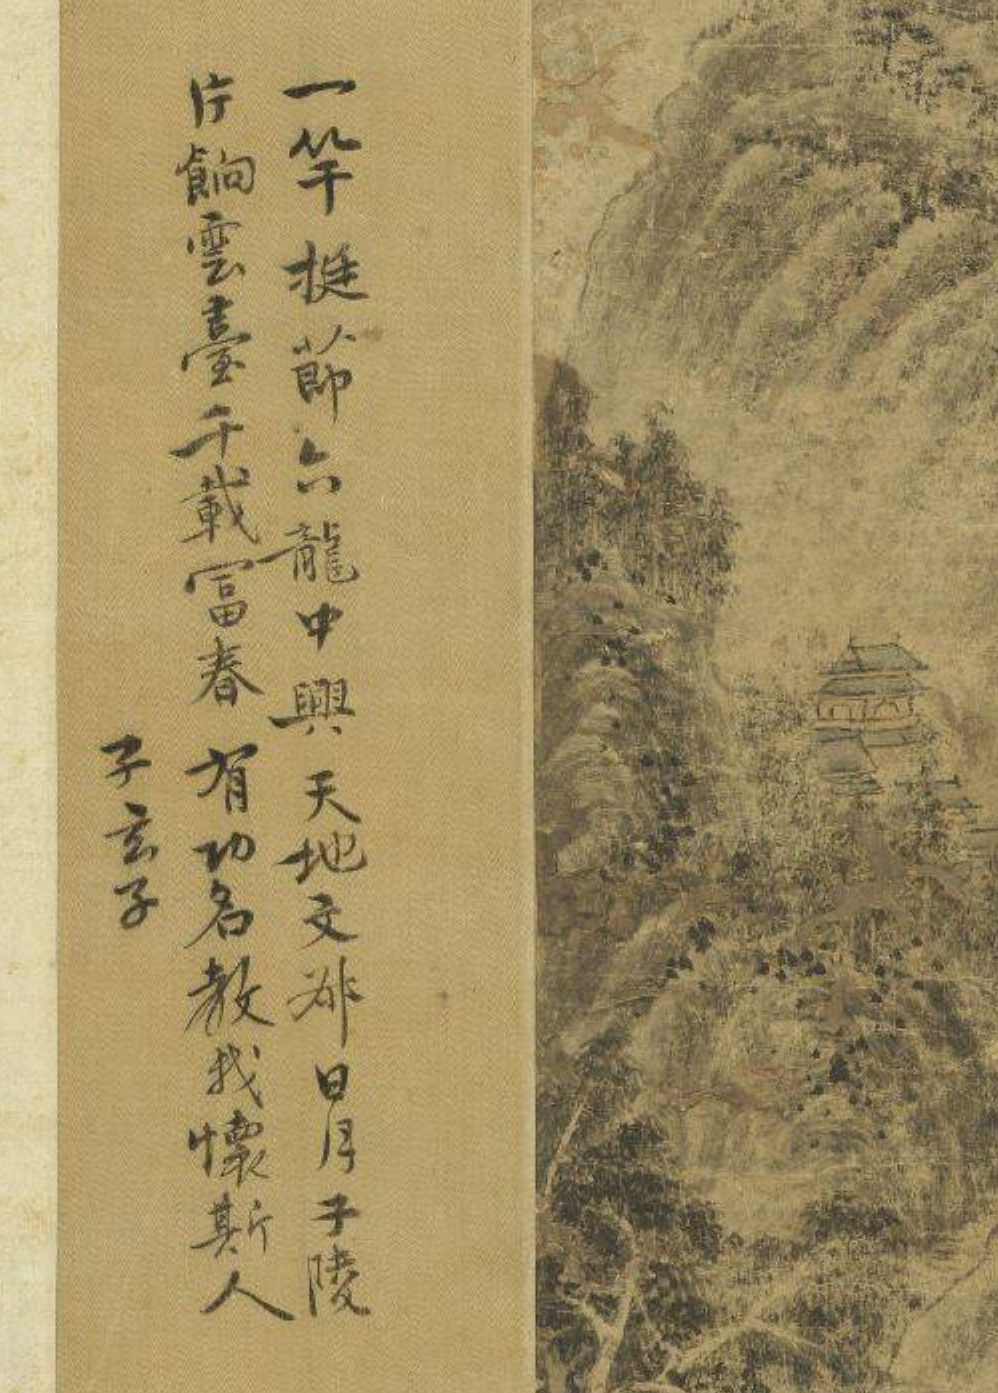 一竿挺節六龍中興天地文叔日月子陵
片餉雲臺千載富春有功名教我懷斯人
子玄子